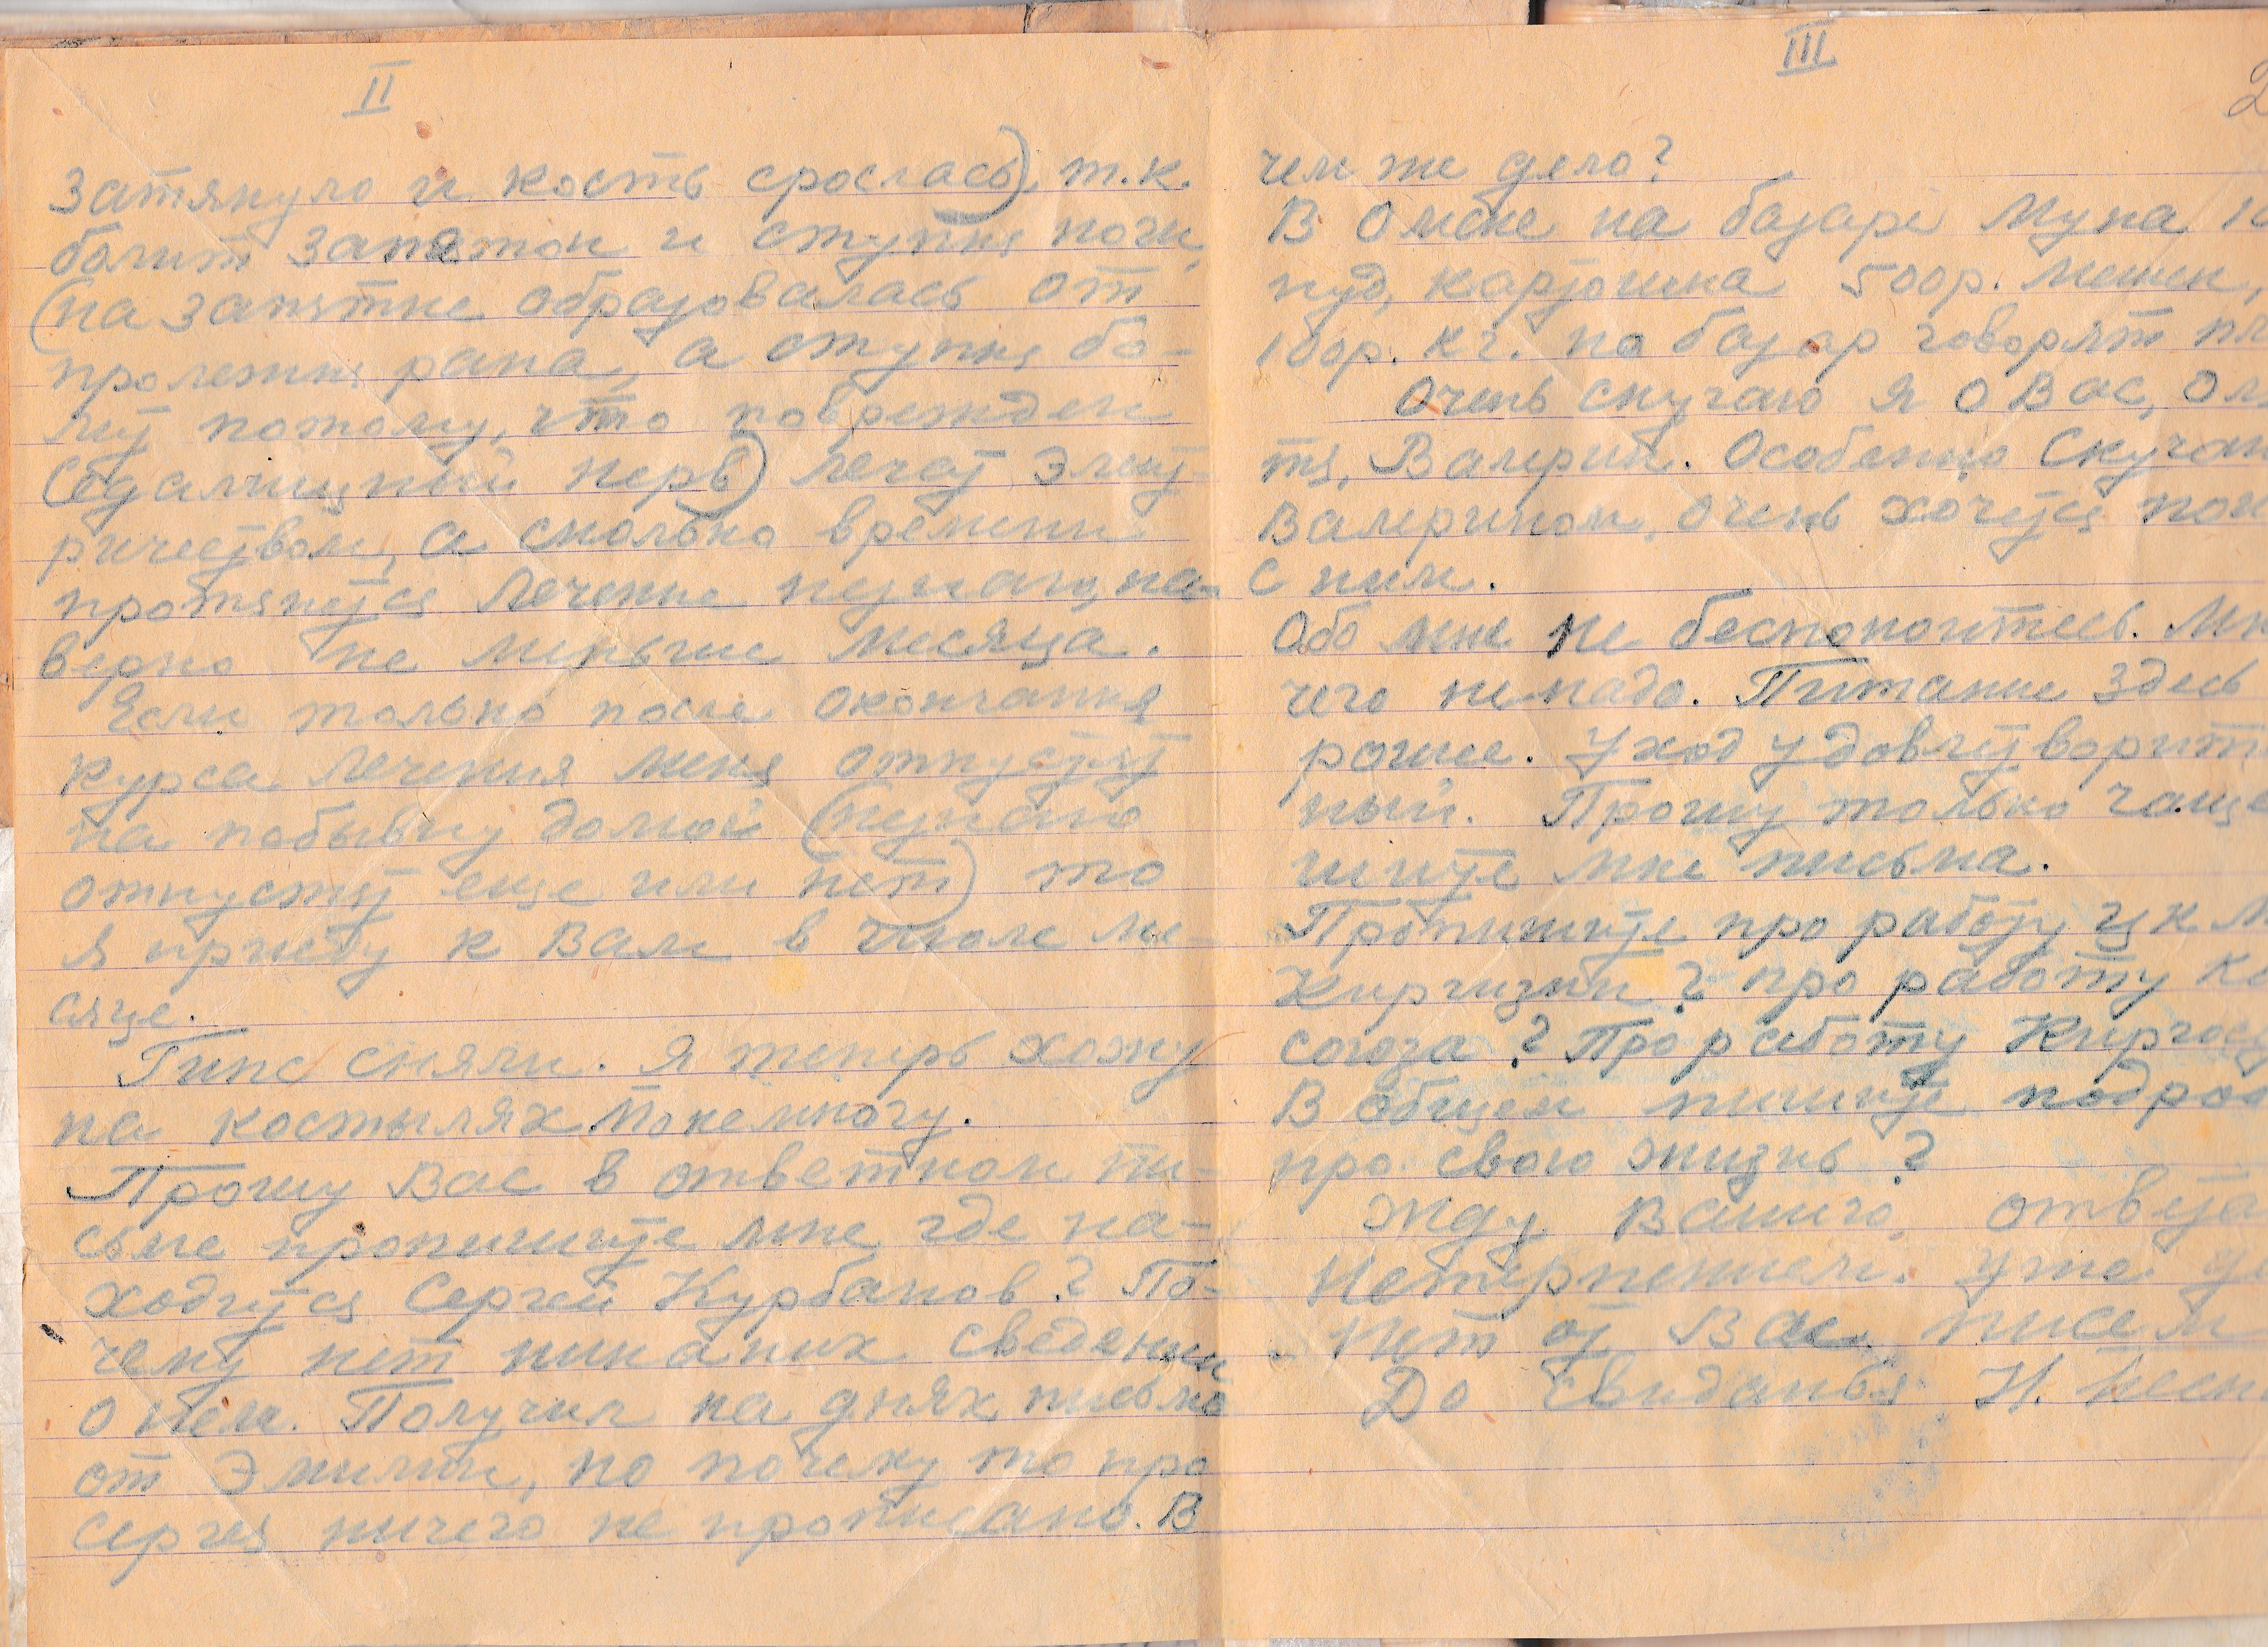 II
затянуло и кость срослась) т.к.
болит запяток и ступня ноги,
(на запятке образовалась от
пролежня рана, а ступня бо-
лит потому, что поврежден
седалищный нерв) лечат элект-
ричеством, а сколько времени
протянется лечение незнаю, на-
верно не меньше месяца.
Если только после окончания
курса лечения меня отпустят
на побывку домой (незнаю
отпустят еще или нет) то
я приеду к Вам в июле ме-
сяце.
Гипс сняли. Я теперь хожу
на костылях понемногу.
Прошу Вас в ответном пи-
сьме пропишите мне, где на-
ходится Сергей Курбанов? По-
чему нет никаких сведений
о нем. Получил на днях письмо
от Эмилии, но почему то про
Сергея ничего не прописано. В
III
2
чем же дело?
В Омске на базаре мука
пуд, картошка 500р. мешок,
100р. кг. но базар говорят
Очень скучаю я о Вас,
тя, Валерий. Особенно скучаю
Валериком, очень хочется
с ним.
Обо мне не беспокоитесь. Мн
чего ненадо. Питание здесь
рошее. Уход удовлетворит
ный. Прошу только чаще
шите мне письма.
Пропишите про работу ЦК
Киргизии? про работу
союза? Про работу Киргос
В общем пишите подроб
про свою жизнь?
Жду Вашего ответа
нетерпением. Уже
нет от Вас писем
До свиданья Н.